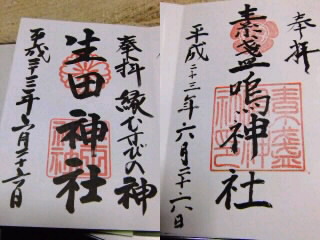 奉拝 縁むすびの神
生田神社
平成二十三年六月二十六日
奉拝
素盞嗚神社
平成二十三年六月二十六日